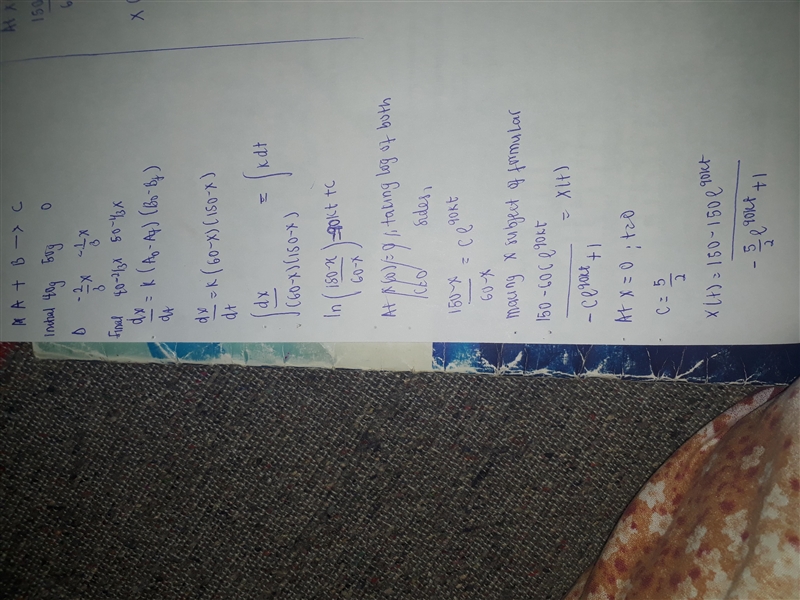 A + B → C
Initial 40g 50g 0
Δ -2/3 x -1/3 x
Final 40-2/3x 50-1/3x
· dx/dt = K (A₀-A_t) (B₀-B_t)
dx/dt = K (60-x)(150-x)
∫ dx/(60-x)(150-x) = ∫ K dt
ln (150-x/60-x) = 90kt + C
taking log of both
sides,
150-x/60-x = C e^90kt
· making x subject of formular
· 150-60C e^90kt/-C e^90kt + 1 = x(t)
· At x = 0 ; t=0
· C = 5/2
x(t) = 150 - 150 e^90kt/-5/2 e^90kt + 1
At x
150
6
x(